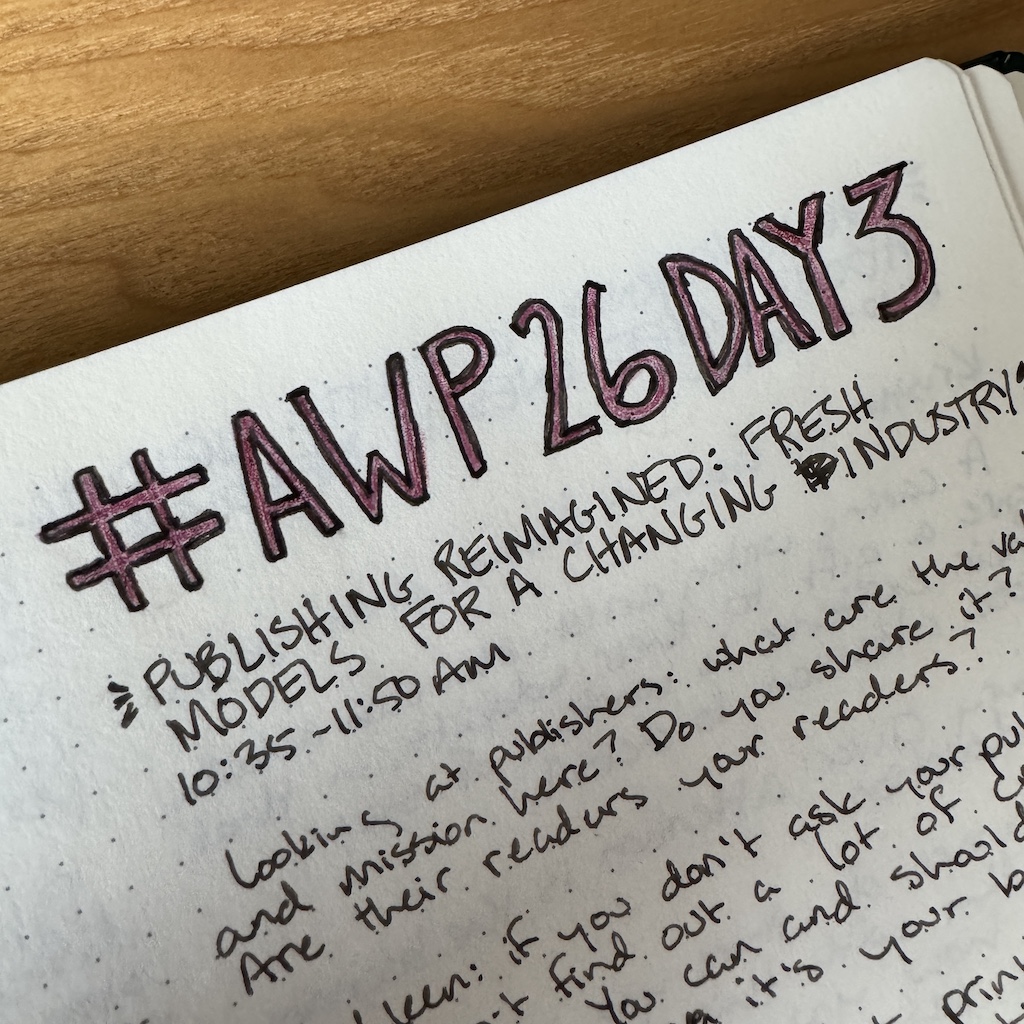 #AWP26 DAY 3
"PUBLISHING REIMAGINED: FRESH
MODELS FOR A CHANGING INDUSTRY"
10:35-11:50 AM
Looking at publishers: what are the
and mission here? Do you share it?
Are their readers your readers?
if you don't ask your
find out a lot of
You can and should
it's your